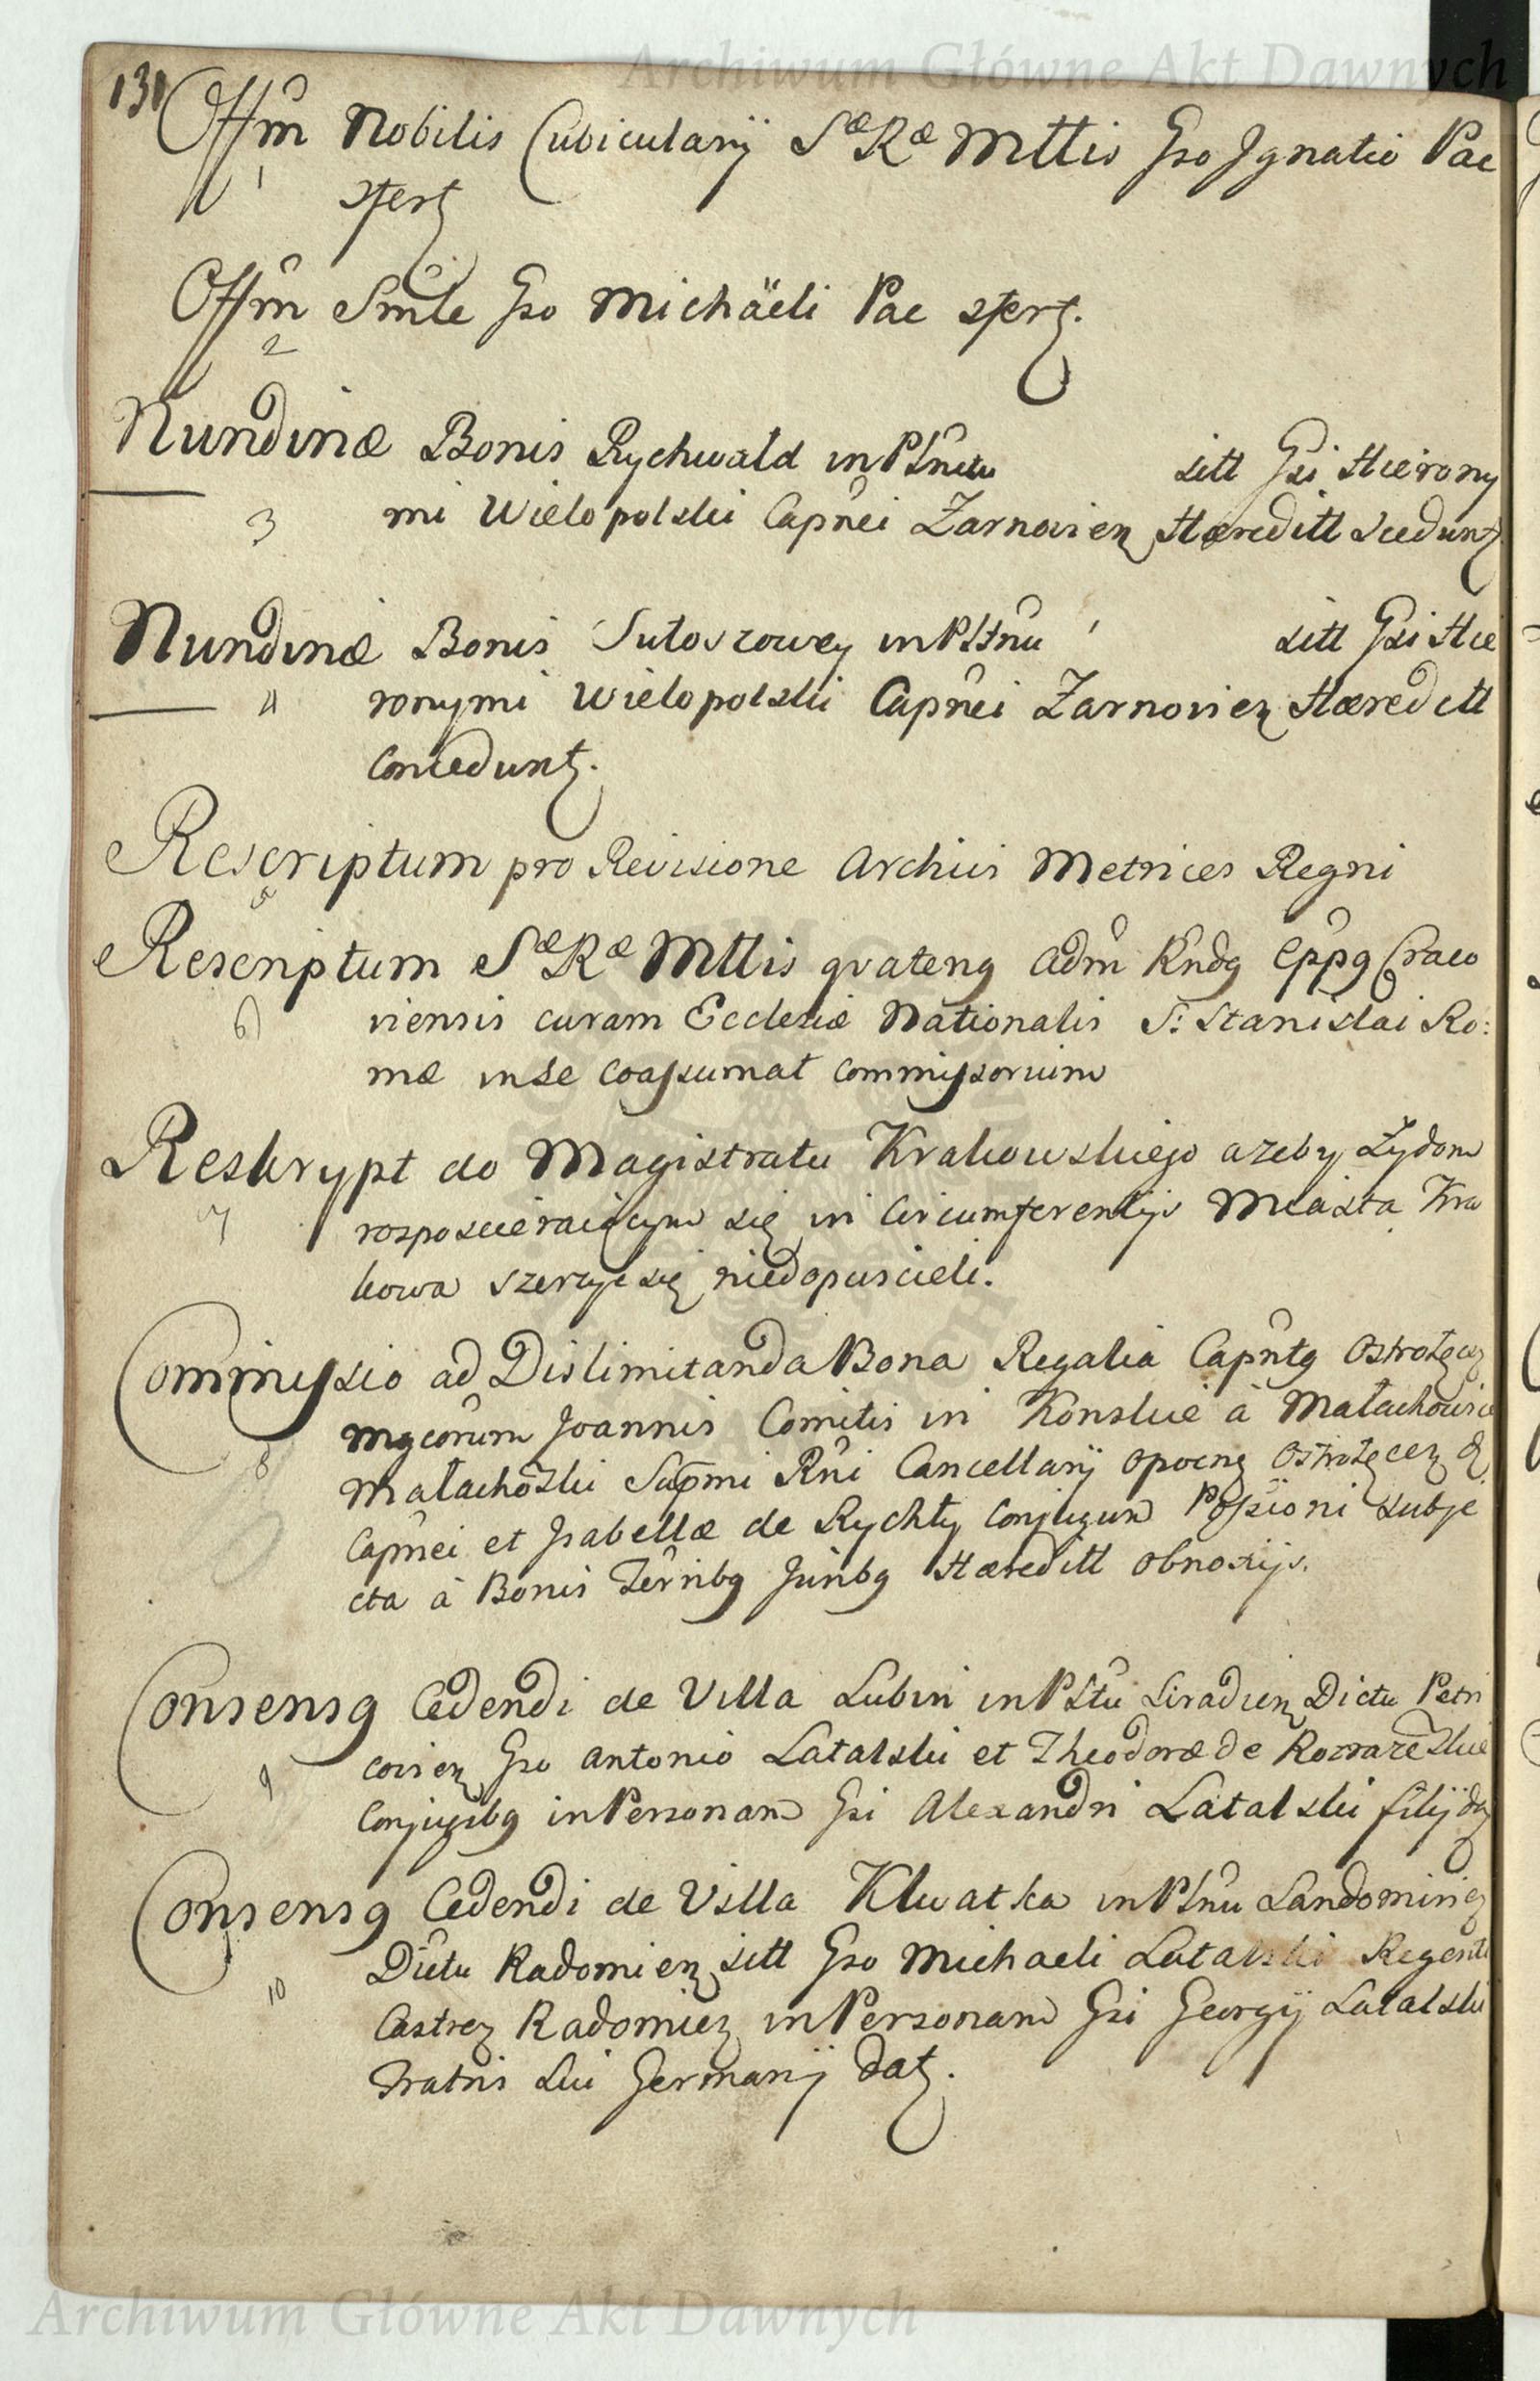 Archiwum Główne Akt Dawnych
131
Offm Nobilis Cubicularij Sæ Ræ Mttis Gso Ignatio Pac
1 sfert
Offm Smle Gso Michäeli Pac sfert.
2
Nundinæ Bonis Rychwałd in Plnttu sitt Gsi Hierony
3 mi Wielopolski Capnei Zarnovien Hæreditt Scedunt
Nundinæ Bonis Sułoszowey in Pltnu sitt Gsi Hie
4 ronymi Wielopolski Capnei Zarnovien Hæreditt
Conceduntt.
Rescriptum pro Revisione Archivi Metrices Regni
5
Rescriptum Sæ Ræ Mttis qvateng Adm Rndg Eppg Craco
6 viensis curam Ecclesiæ Nationalis S: Stanislai Ro:
mæ in se Coassumat Commissorium
Reskrypt do Magistratu Krakowskiego azeby Zydom
7 rozposcieraiącym się in Circumferentijs Miasta Kra
kowa szerzyc się niedopuscieli.
Commissio ad Dislimitanda Bona Regalia Capntg Ostrołęcz
Mgcorum Joannis Comitis in Konskie à Małachowice
8 Małachoski Supmi Rni Cancellarij Opocn Ostrołęcen &
Capnei et Isabellæ de Rychły Conjugum Possioni subje
cta à Bonis Terribg Junbg Hæreditt obnoxijs.
Consensg Cedendi de Villa Lubin in Pltu Siradien Dictu Petri
9 covien Gso Antonio Latalski et Theodoræ de Rozrazeskie
Conjugibg in Personam Gsi Alexandri Latalski filij dat
Consensg Cedendi de Villa Klwatka in Pltnu Sandomirien
Dictu Radomien sitt Gso Michaeli Latalski Regenti
10 Castren Radomien in Personam Gsi Georgij Latalski
Fratris Sui Germanij dat.
Archiwum Główne Akt Dawnych